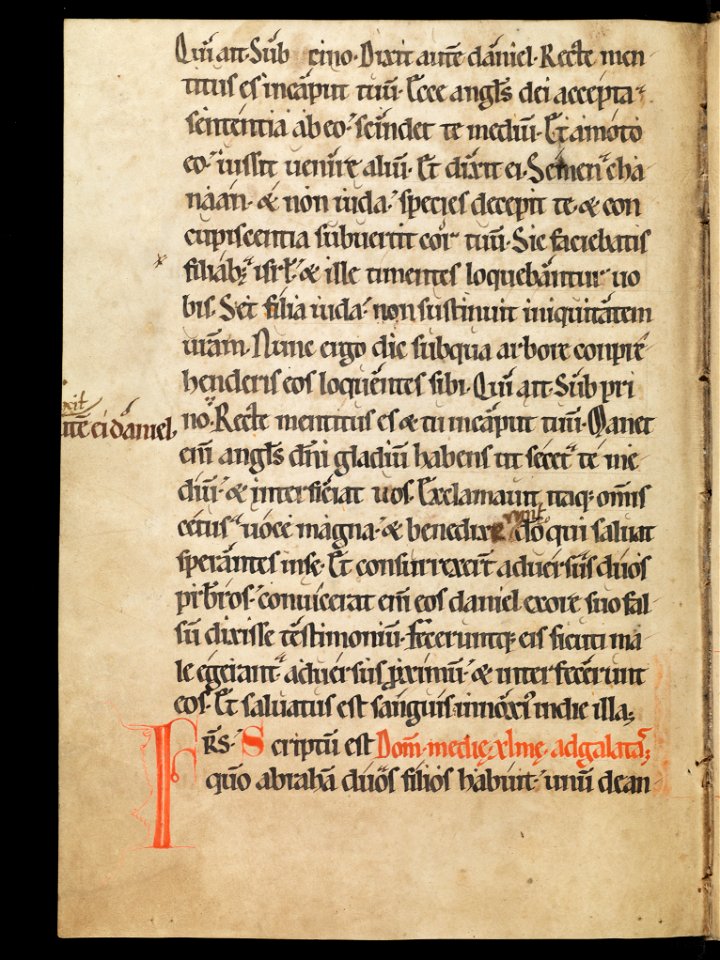 Qui ait. Sub cino. Dixit autē daniel. Recte men
titus es incaput tuū. Ecce angl̄s dei accepta
sententia abeo. scindet te mediū. Et amoto
eo. iussit uenire aliū. Et dixit ei. Semen cha
naan. & non iuda. species decepit te. & con
cupiscentia subuertit cor tuū. Sic faciebatis
filiabꝫ isrl̄. & ille timentes loquebantur uo
bis. Set filia iuda. non sustinuit iniquitatem
urām. Nunc ergo dic subqua arbore conpre
henderis eos loquentes sibi. Qui ait. Sub pri
no. Recte mentitus es & tu incaput tuū. Manet
xit
utē ei daniel.
enī angl̄s dn̄i gladiū habens ut secet te me
diū. & interficiat uos. Exclamauit itaqꝫ omīs
cetus uoce magna. & benedixe runt dō qui saluat
sperantes inse. Et consurrexer̄t aduersus duos
pr̄bros. conuicerat enī eos daniel exore suo fal
sū dixisse testimoniū. feceruntqꝫ eis sicuti ma
le egerant aduersus ꝓximū. & interfecerunt
eos. Et saluatus est sanguis innoxiꝰ indie illa;
FR̄S. Scriptū est Dom̄. medię xl̄mę. adgalatas;
quō abrahā duos filios habuit. unū dean